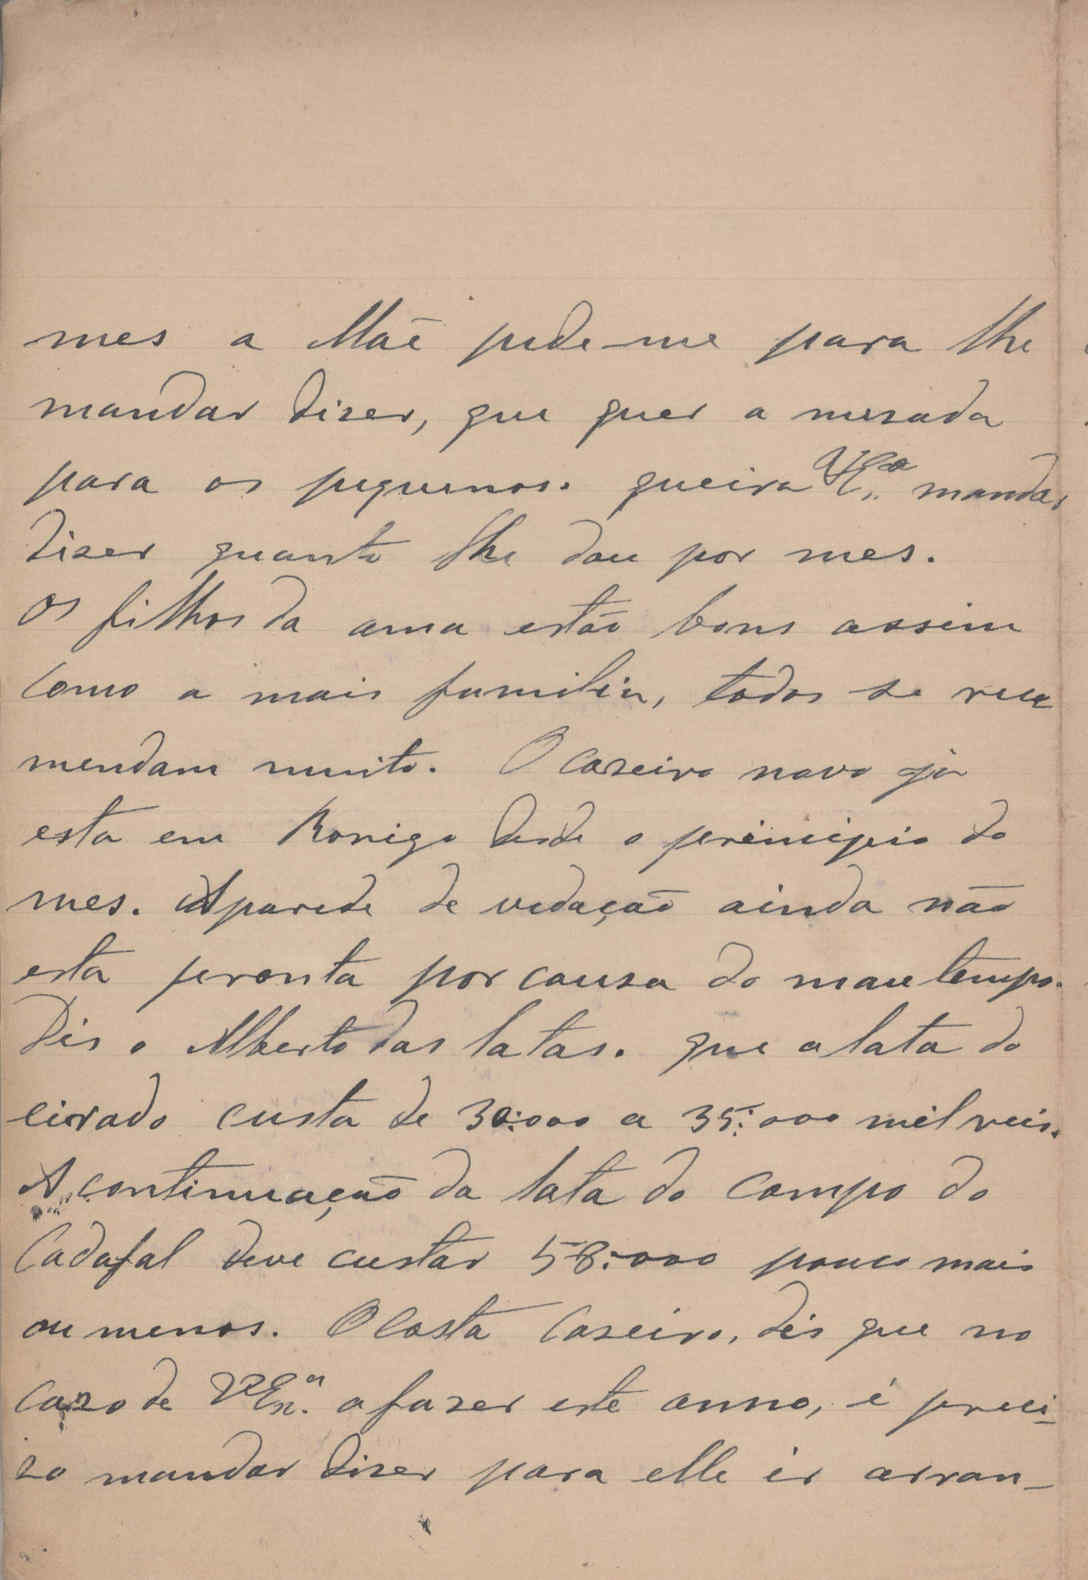 mes a Mãe pede-me para lhe
mandar diser, que quer a mesada
para os pequenos. queira VEx.ª mandar
diser quanto lhe dou por mes.
Os filhos da ama estão bons assim
como a mais familia, todos se reco
mendam muito. O Caseiro novo já
esta em Rorigo desde o preincipio do
mes. A parede de vedação ainda não
esta pronta por causa do mau tempo.
Dis o Alberto das latas. que a lata do
eirado custa de 30:000 a 35:000 mil reis.
A continuação da lata do campo do
Cadafal deve custar 58:000 pouco mais
ou menos. O Costa Caseiro, dis que no
cazo de VEx.ª a faser este anno, é preci-
zo mandar diser para elle ir arran-